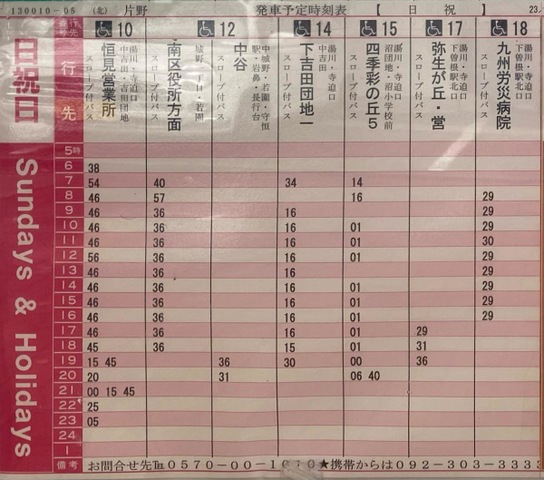 130010-05 (北) 片野 発車予定時刻表 【 日 祝 】 23.
日祝日
Sundays & Holidays
行先
10 12 14 15 17 18
恒見営業所
湯川・寺迫口
中吉田・吉田団地
スロープ付バス
南区役所方面
スロープ付バス
中谷
中城野・若園・守恒
駅・岩鼻・長行・台
スロープ付バス
下吉田団地一
湯川・寺迫口
中吉田
スロープ付バス
四季彩の丘5
湯川・寺迫口
沼団地・沼小学校前
スロープ付バス
弥生が丘・営
湯川・寺迫口
下曽根駅北口
スロープ付バス
九州労災病院
湯川・寺迫口
下曽根駅北口
スロープ付バス
5時
6 38
7 54 40 34 14
8 46 57 16 29
9 46 36 16 29
10 46 36 16 01 29
11 46 36 16 01 30
12 56 36 16 01 29
13 46 36 16 29
14 46 36 16 01 29
15 46 36 16 01 29
16 46 36 16 01 29
17 46 36 16 01 29
18 45 36 15 01 31
19 15 45 36 30 00 36
20 20 31 06 40
21 00 15 45
22 25
23 05
24
1
備考 お問合せ先℡0570-00-1010★携帯からは092-303-3333